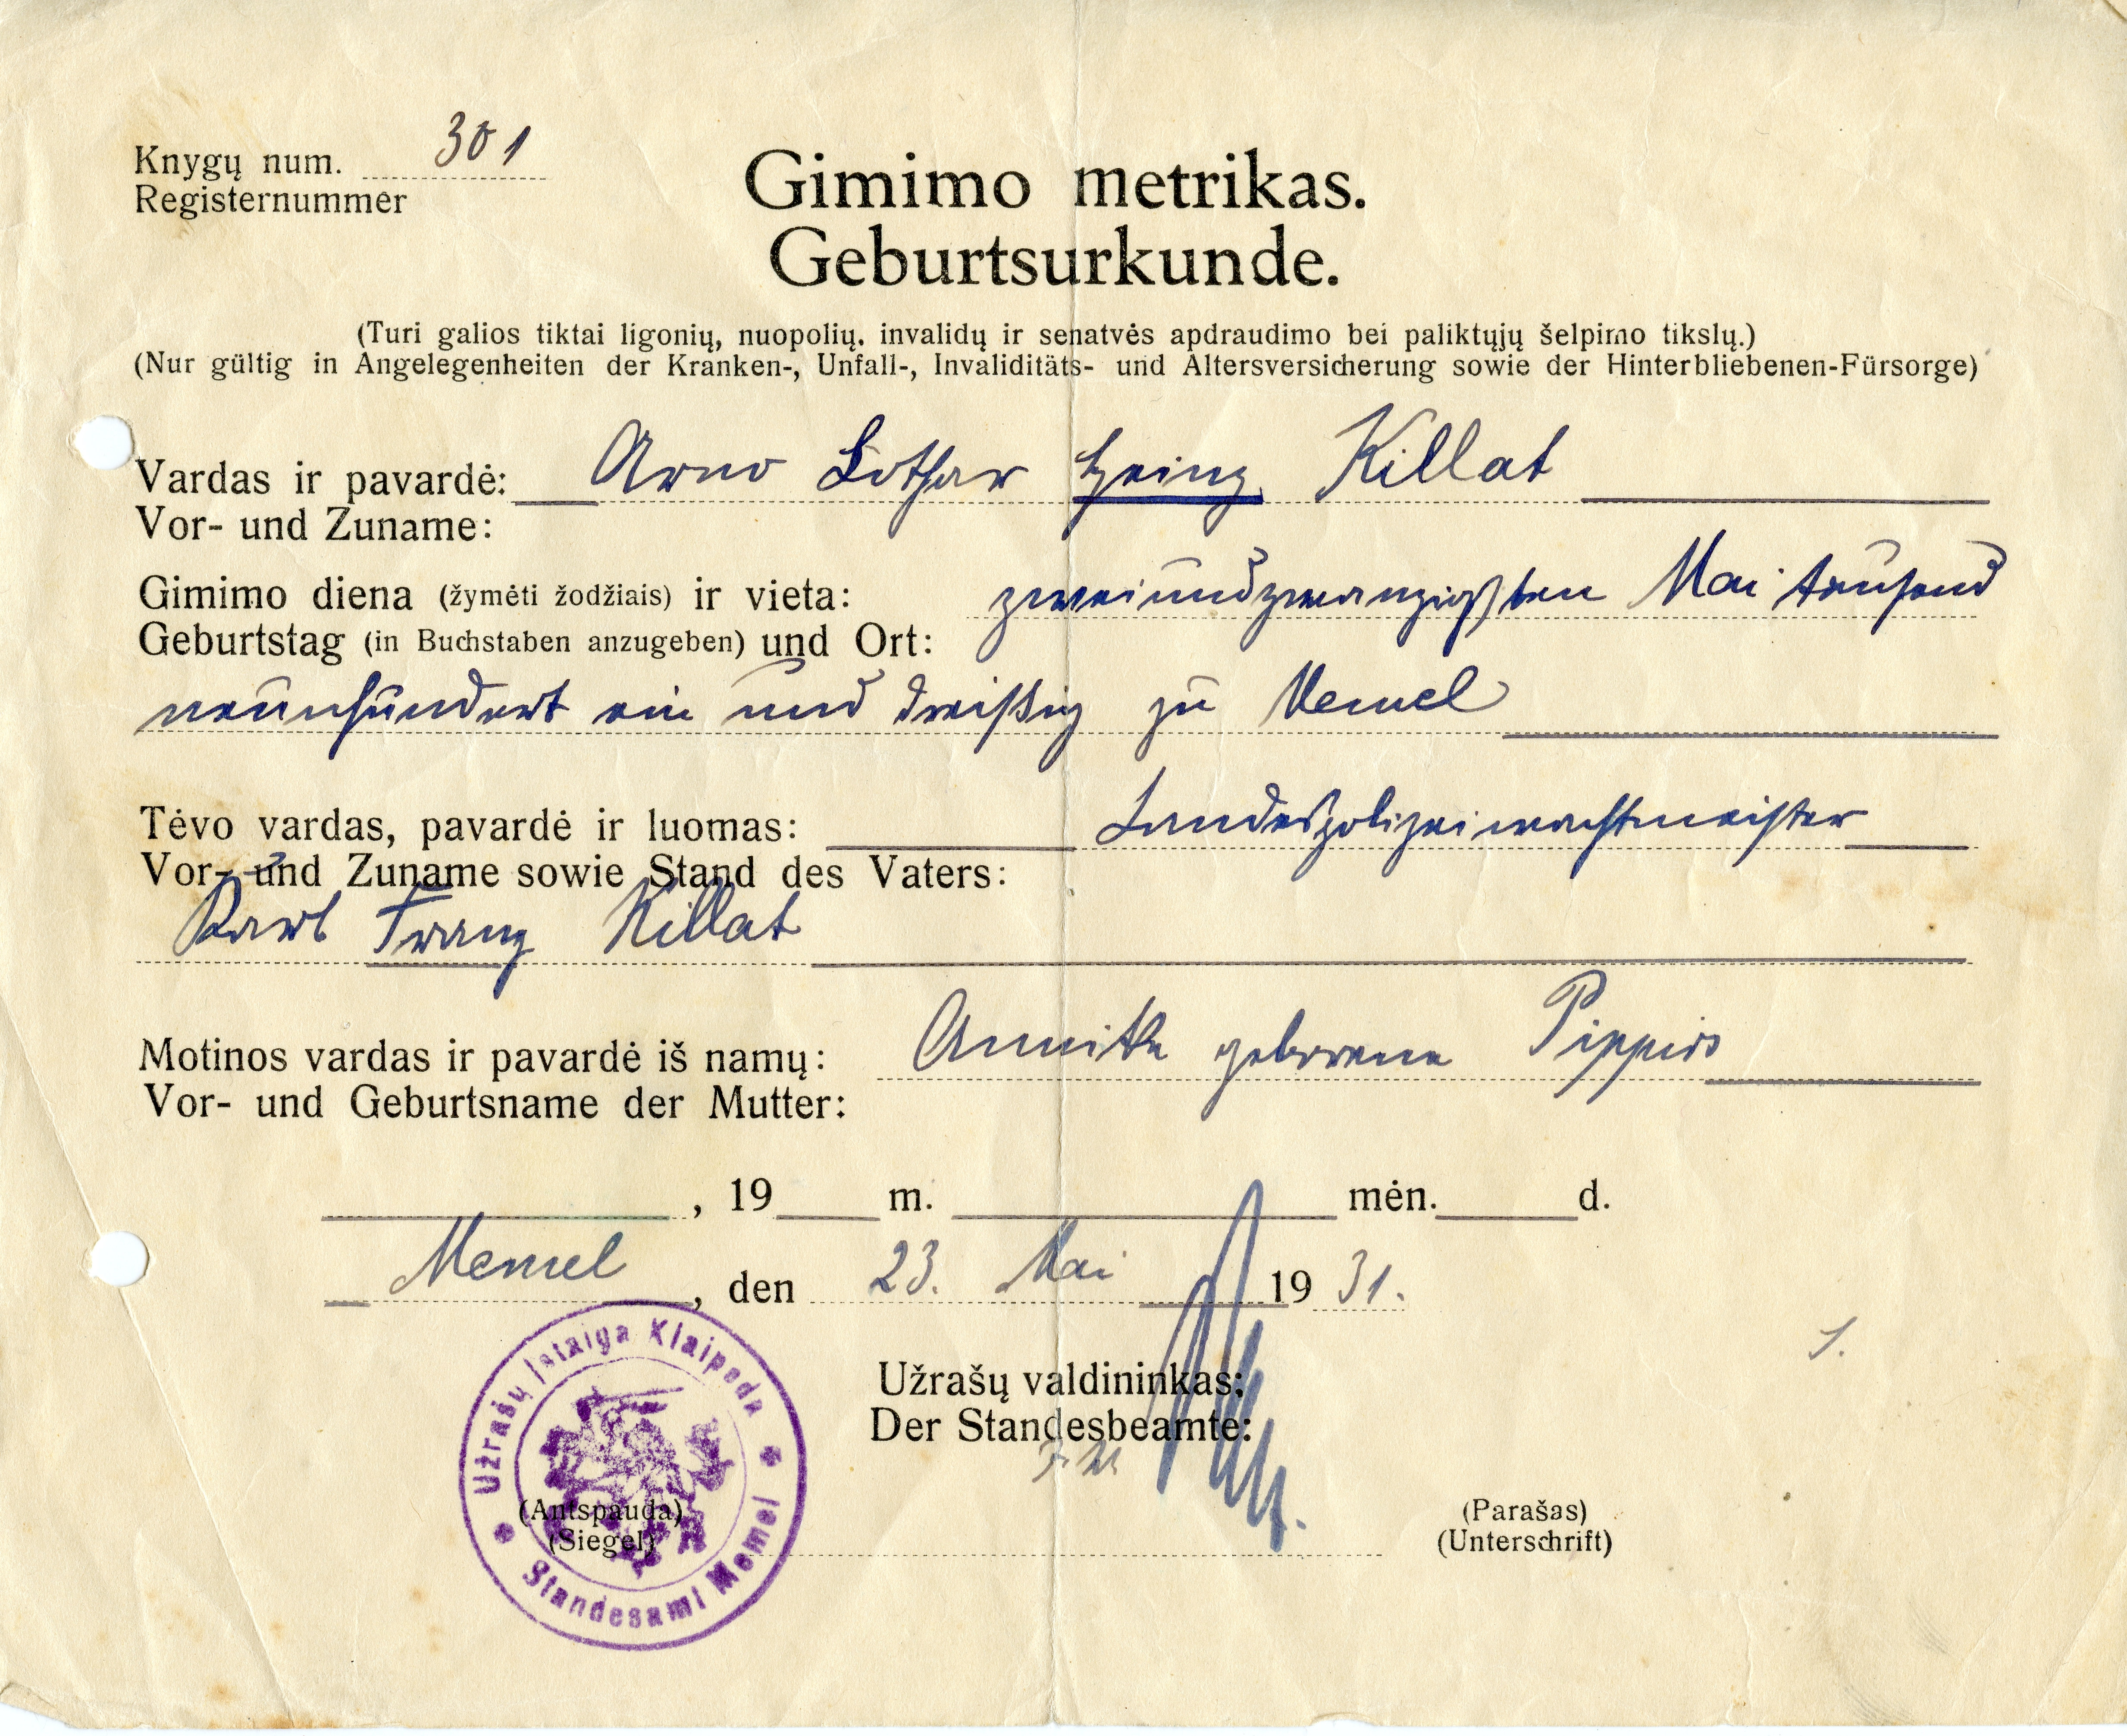 Knygų num. 301
Registernummer
Gimimo metrikas.
Geburtsurkunde.
(Turi galios tiktai ligonių, nuopolių, invalidų ir senatvės apdraudimo bei paliktųjų šelpimo tikslų.)
(Nur gültig in Angelegenheiten der Kranken-, Unfall-, Invaliditäts- und Altersversicherung sowie der Hinterbliebenen-Fürsorge)
Vardas ir pavardė: Arno Lothar Heinz Killat
Vor- und Zuname:
Gimimo diena (žymėti žodžiais) ir vieta: zweiundzwanzigsten Mai tausend
Geburtstag (in Buchstaben anzugeben) und Ort:
neunhundert ein und dreißig zu Memel
Tėvo vardas, pavardė ir luomas: Landespolizeiwachtmeister
Vor- und Zuname sowie Stand des Vaters:
Karl Franz Killat
Motinos vardas ir pavardė iš namų: Annike geborene Pippirs
Vor- und Geburtsname der Mutter:
, 19 m. mėn. d.
Memel, den 23. Mai 1931.
Užrašų valdininkas:
Der Standesbeamte:
Užrašų Įstaiga Klaipėda
Standesamt Memel
(Antspauda)
(Siegel)
(Parašas)
(Unterschrift)